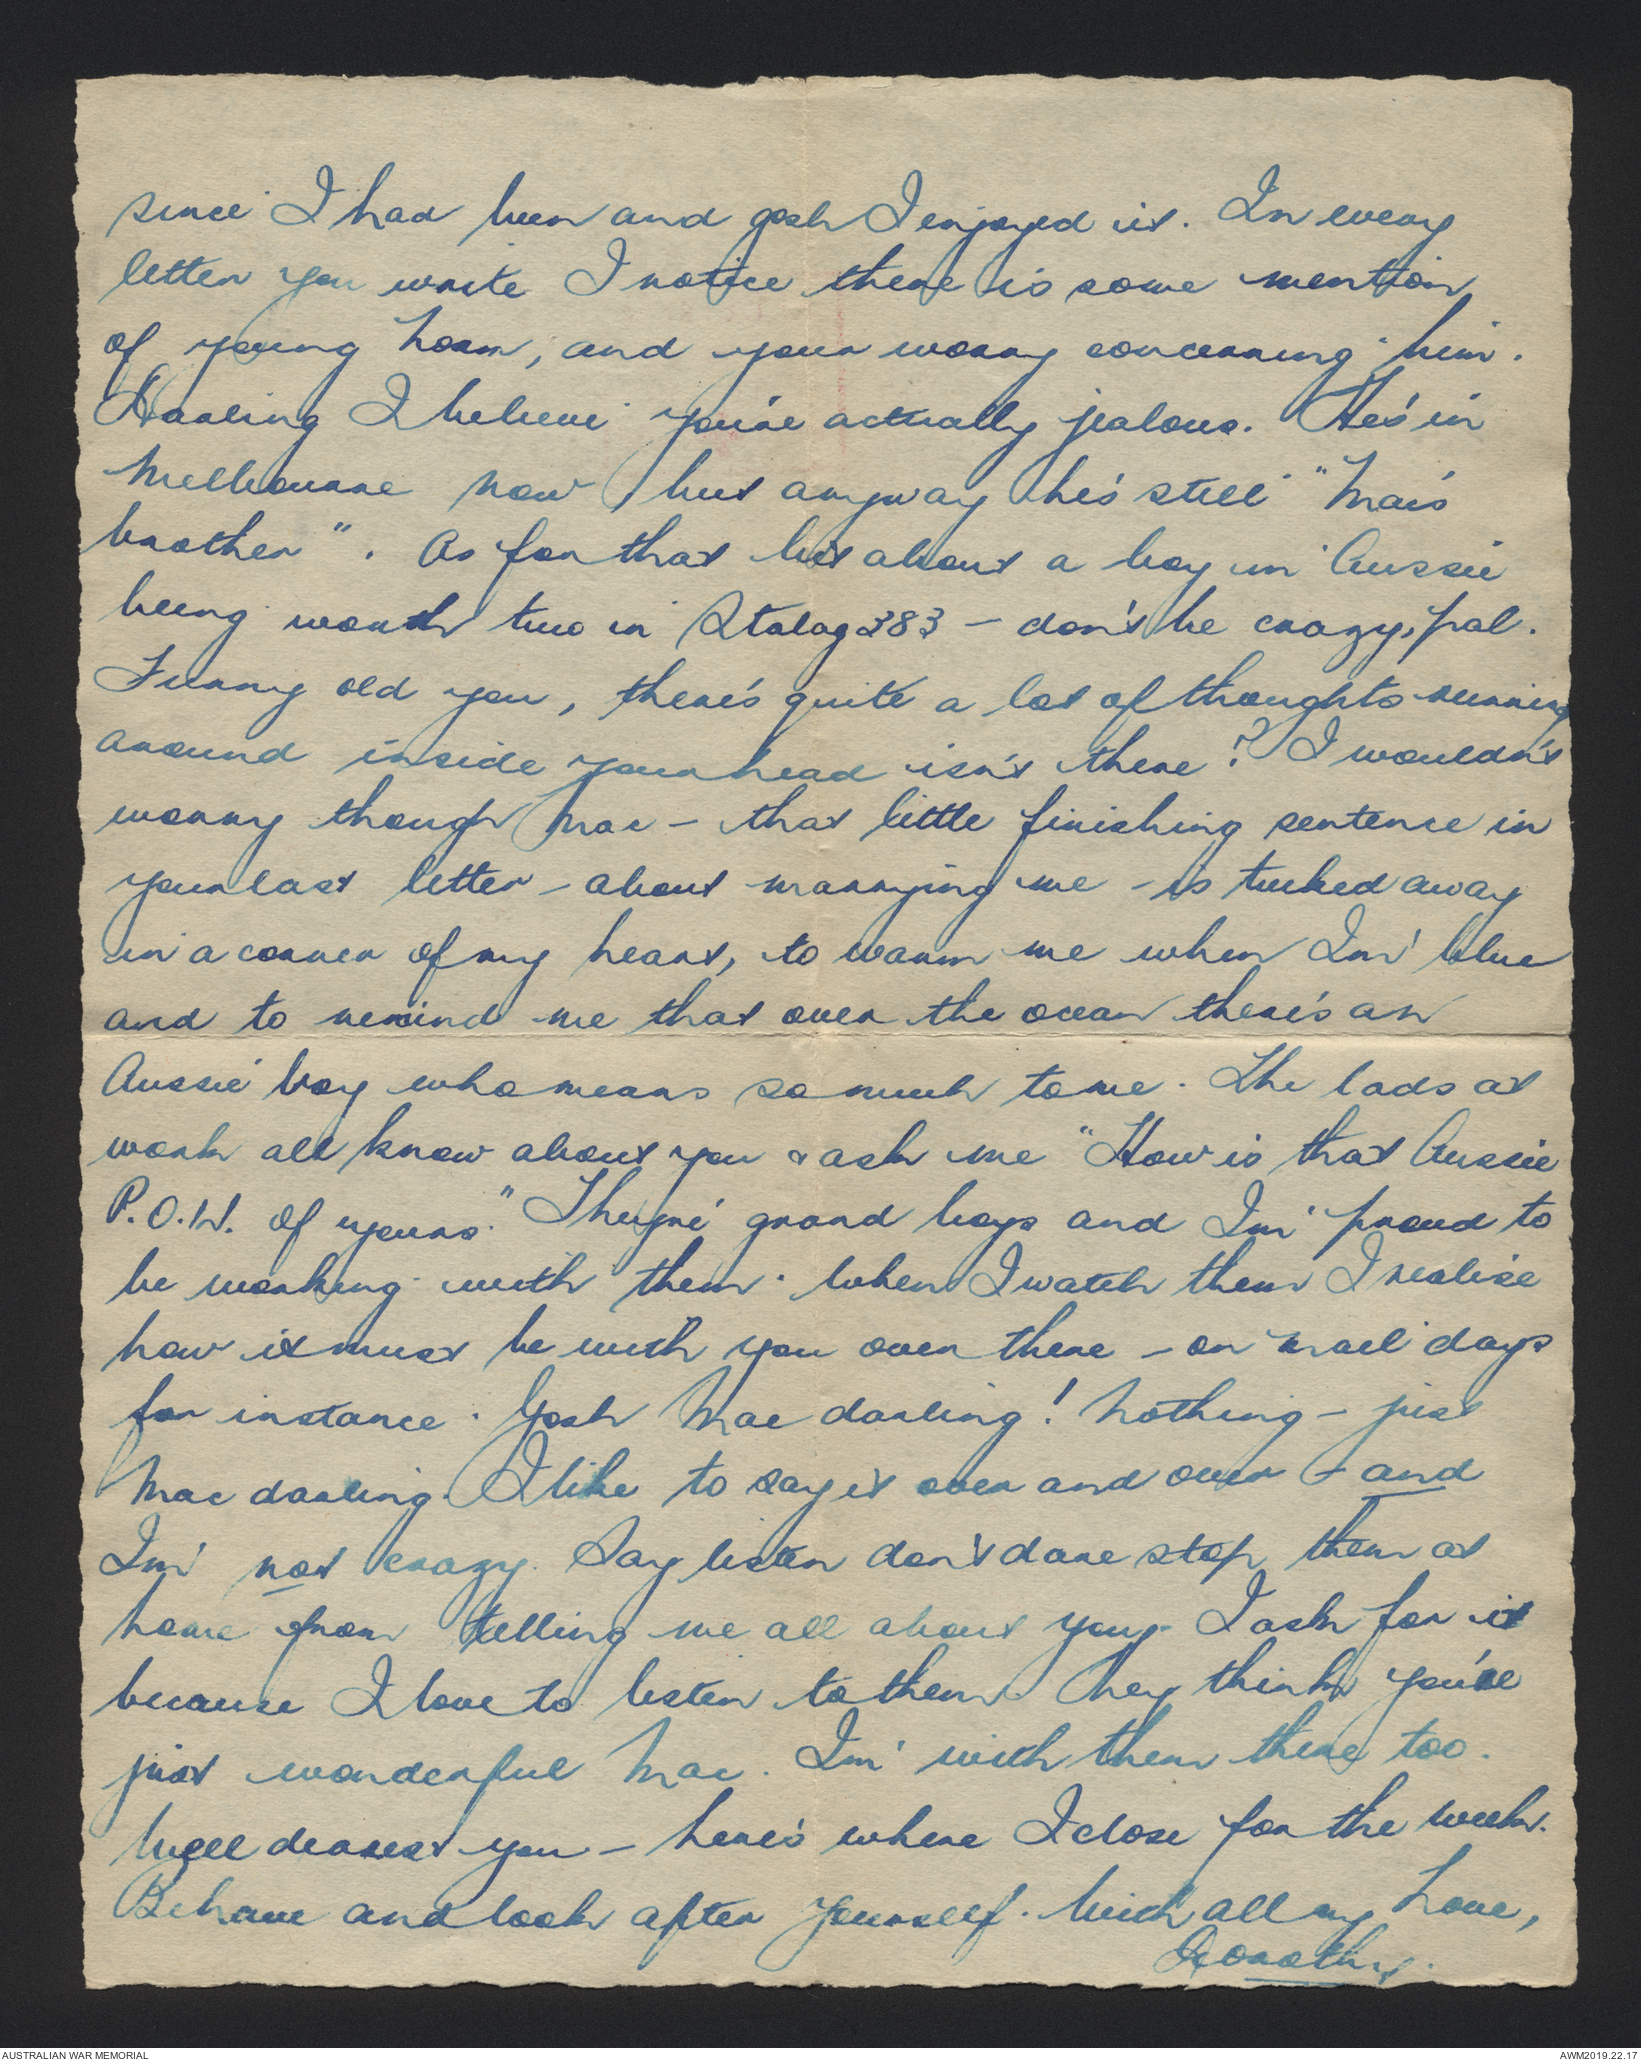 since I had been and gosh I enjoyed it. In every
letter you write I notice there is some mention
of young Norm, and your worry concerning him.
Darling I believe you're actually jealous. He's in
Melbourne now but anyway he's still "Mac's
brother". As for that bit about a boy in Aussie
being worth two in Stalag 383 - don't be crazy, pal.
Funny old you, there's quite a lot of thoughts running
around inside your head isn't there? I wouldn't
worry though Mac - that little finishing sentence in
your last letter - about marrying me - is tucked away
in a corner of my heart, to warm me when I'm blue
and to remind me that over the ocean there's an
Aussie boy who means so much to me. The lads at
work all know about you & ask me "How is that Aussie
P.O.W. of yours." They're grand boys and I'm proud to
be working with them. When I watch them I realise
how it must be with you over there - on mail days
for instance. Gosh Mac darling! Nothing - just
Mac darling. I like to say it over and over - and
I'm not crazy. Say listen don't dare stop them at
home from telling me all about you. I ask for it
because I love to listen to them. They think you're
just wonderful Mac. I'm with them there too.
Well dearest you - here's where I close for the week.
Behave and look after yourself. With all my Love,
Dorothy.
AUSTRALIAN WAR MEMORIAL
AWM2019.22.17